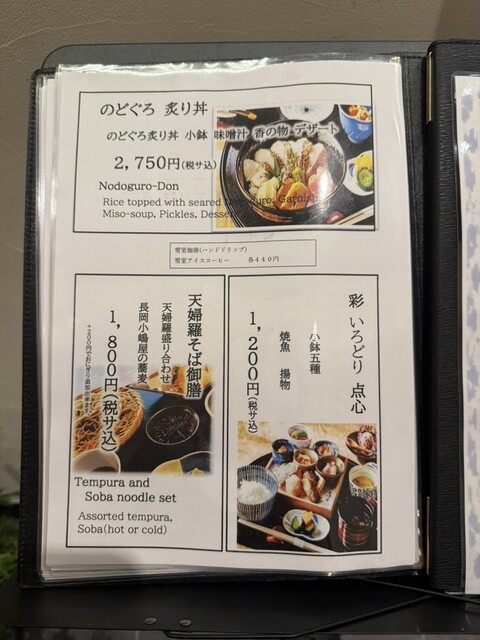 のどぐろ 炙り丼
のどぐろ炙り丼 小鉢 味噌汁 香の物 デザート
2,750円(税サ込)
Nodoguro-Don
Rice topped with seared Garnish,
Miso-soup, Pickles, Dessert
雪室珈琲(ハンドドリップ)
雪室アイスコーヒー 各440円
天婦羅そば御膳
天婦羅盛り合わせ
長岡小嶋屋の蕎麦
1,800円(税サ込)
Tempura and
Soba noodle set
Assorted tempura,
Soba(hot or cold)
彩 いろどり 点心
小鉢五種
焼魚 揚物
1,200円(税サ込)